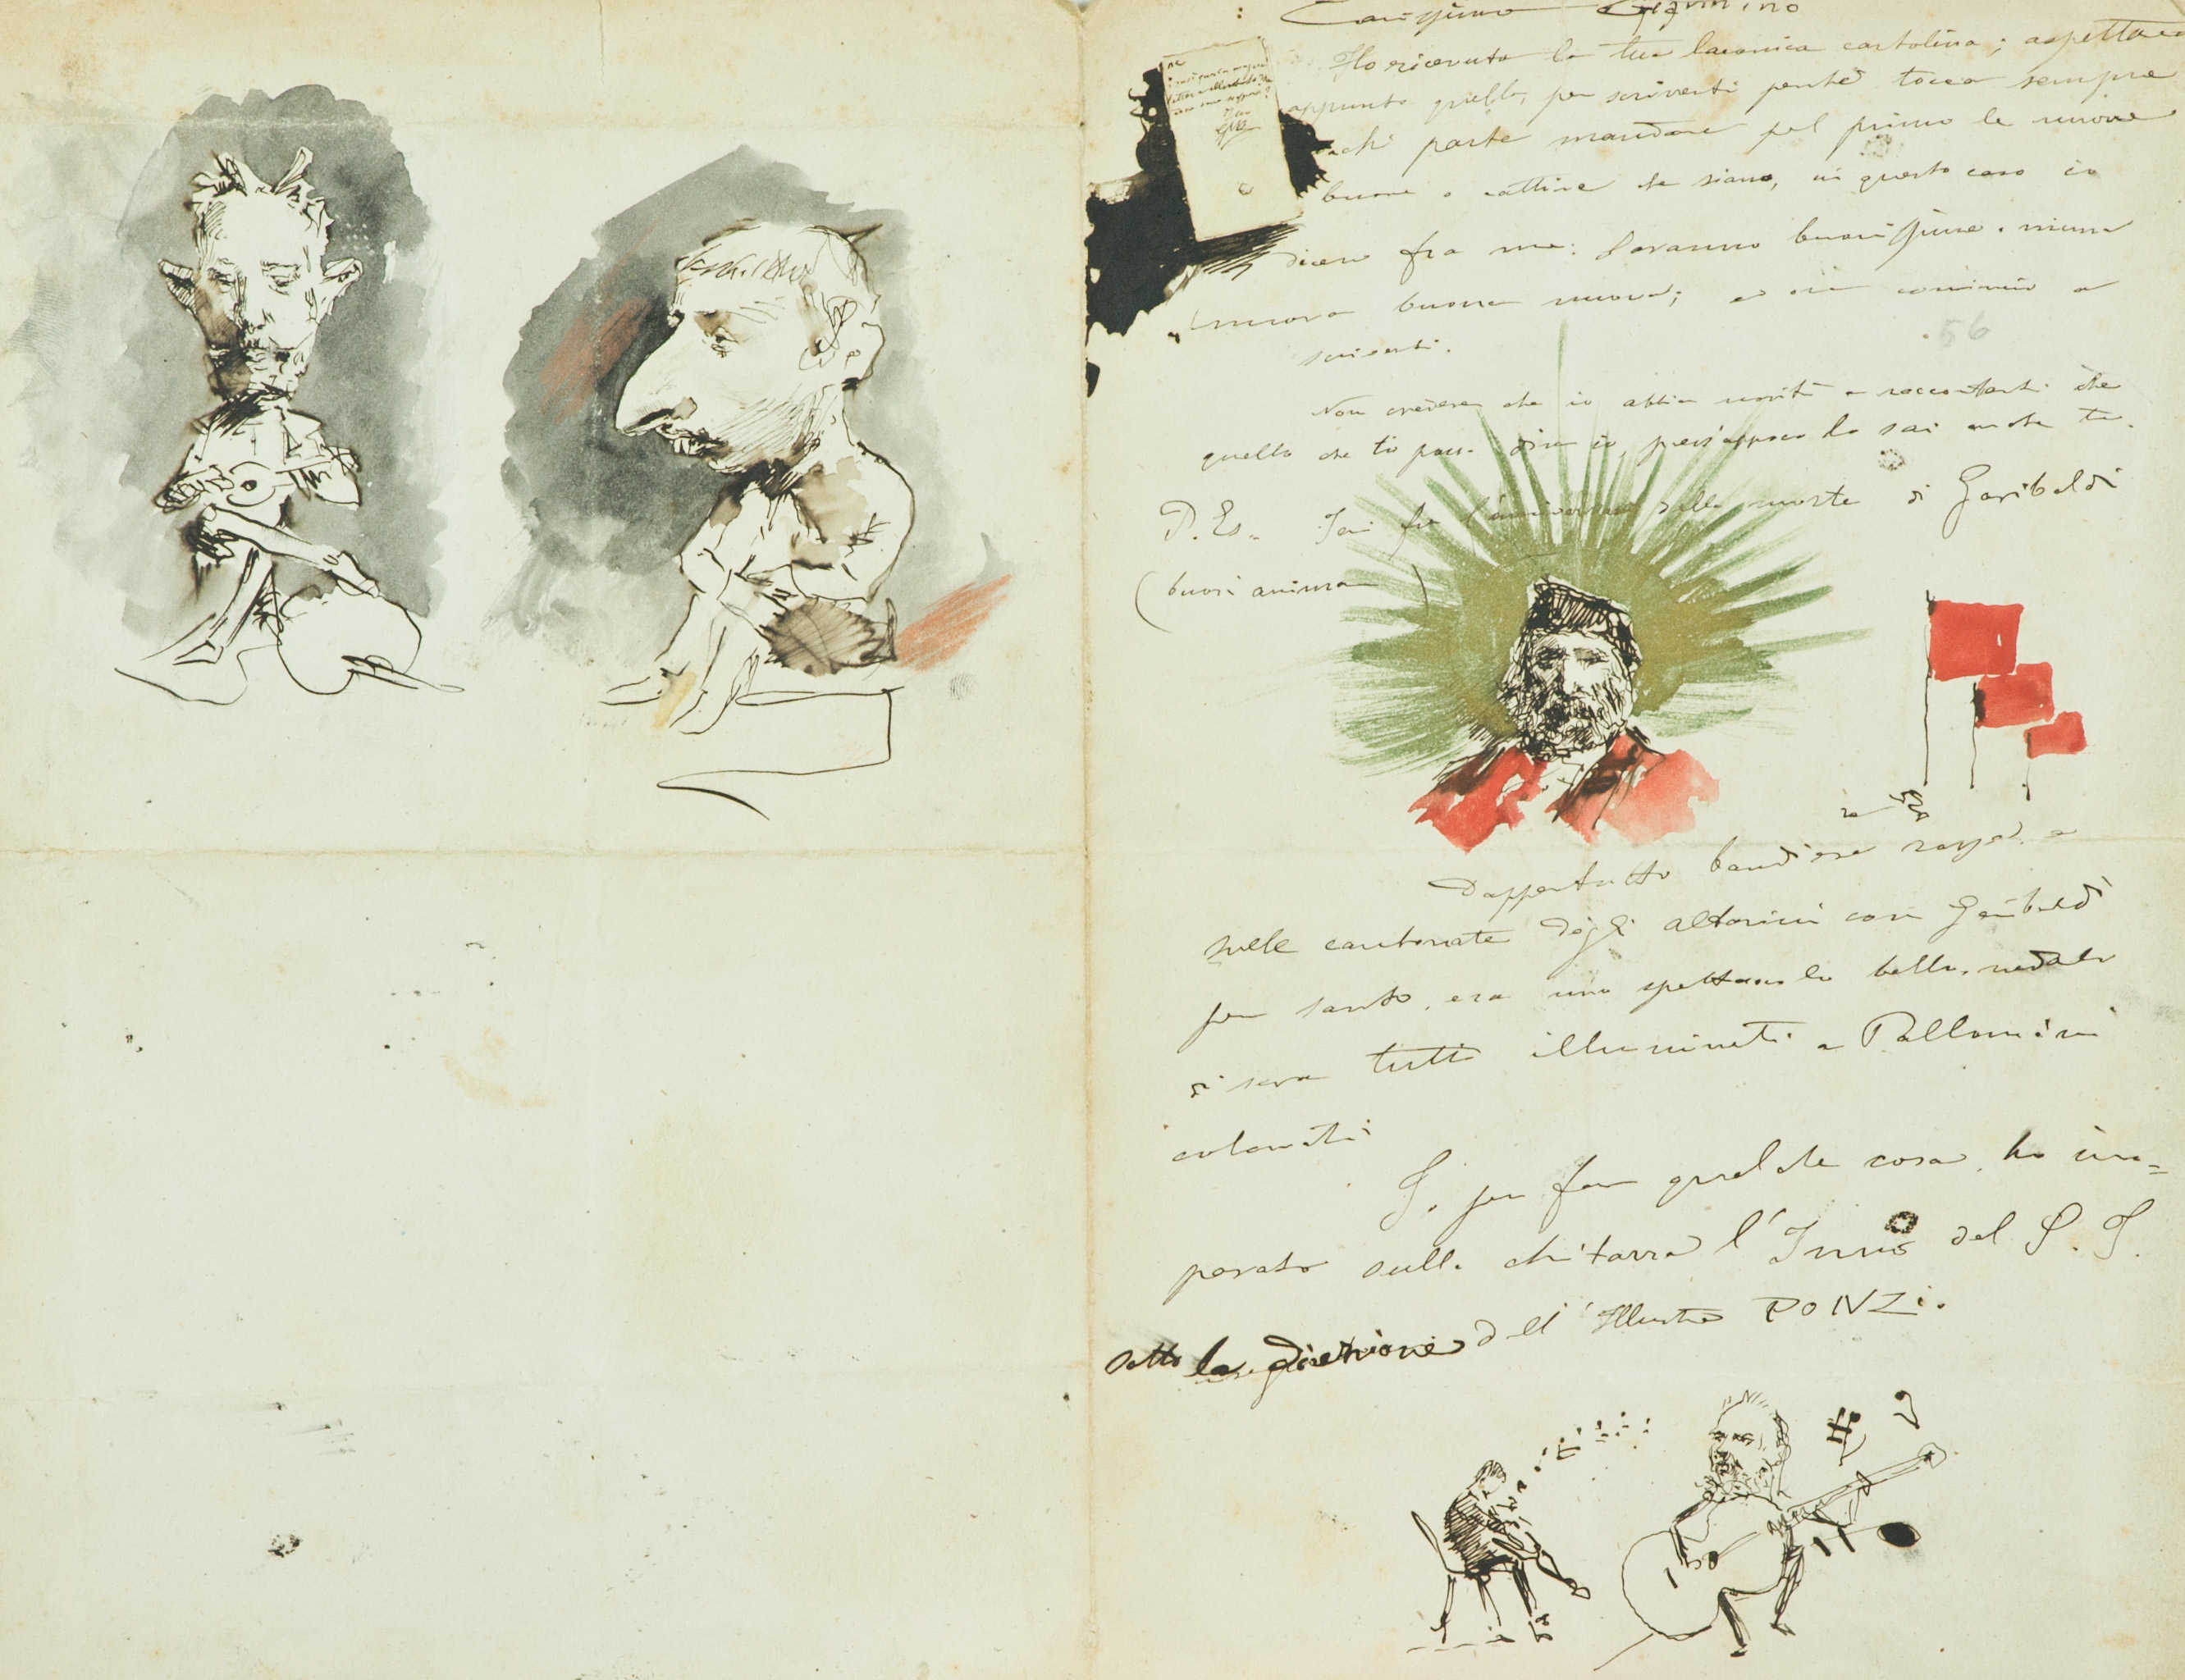 Carissimo Gigmnino
Ho ricevuto la tua laconica cartolina; aspettavo
appunto quella, per scriverti perchè tocca sempre
a chi parte mandare pel primo le nuove
buone o cattive che siano, in questo caso io
dicevo fra me: Saranno buonissime. niuna
nuova buona nuova; e ora comincio a
scriverti.
56
Non credere che io abbia novità a raccontarti. che
quello che ti posso dire io, press'appoco lo sai anche te.
P. Es. Ieri fu l'anniversario della morte di Garibaldi
(buon anima)
Dappertutto bandiere rosse e
sulle cantonate degli altarini con Garibaldi
per santo, era uno spettacolo bello. vederli
di sera tutti illuminati a Palloncini
colorati.
I, per far qualche cosa, ho im=
parato sulla chitarra l'Inno del S. G.
sotto la direzione dell'Illustre PONZi.